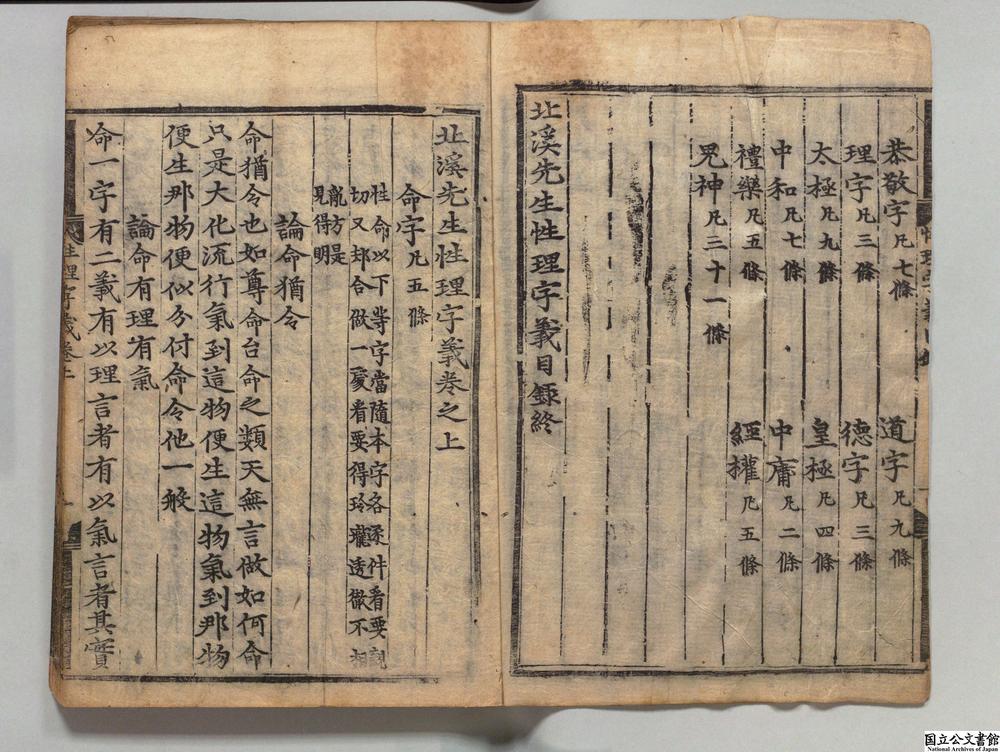 恭敬字凡七條 道字凡九條
理字凡三條 德字凡三條
太極凡九條 皇極凡四條
中和凡七條 中庸凡二條
禮樂凡五條 經權凡五條
鬼神凡三十一條
北溪先生性理字義目錄終
北溪先生性理字義卷之上
命字凡五條
性命以下等字當隨本字各逐件看要親
切又却合做一處看要得玲瓏透徹不相
亂方是
見得明
論命猶令
命猶令也如尊命台命之類天無言做如何命
只是大化流行氣到這物便生這物氣到那物
便生那物便似分付命令他一般
論命有理有氣
命一字有二義有以理言者有以氣言者其實
性理字義卷上
国立公文書館
National Archives of Japan